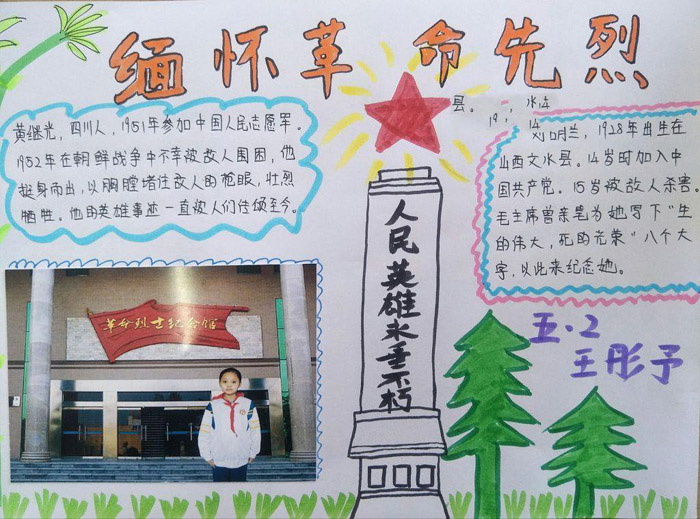 缅怀革命先烈
黄继光，四川人，1951年参加中国人民志愿军。
1952年在朝鲜战争中不幸被敌人围困，他
挺身而出，以胸膛堵住敌人的枪眼，壮烈
牺牲。他的英雄事迹一直被人们传颂至今。
县。
水
19
14
刘胡兰，1928年出生在
山西文水县。14岁时加入中
国共产党。15岁被敌人杀害。
毛主席曾亲笔为她写下“生
的伟大，死的光荣”八个大
字，以此来纪念她。
人民英雄永垂不朽
革命烈士纪念馆
五.2
王彤予